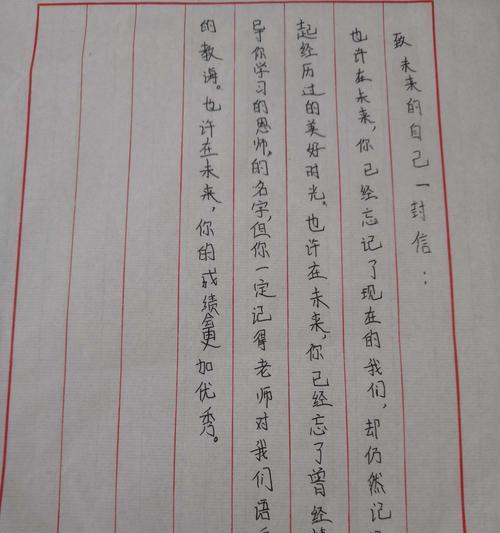 致未来的自己一封信：
也许在未来，你已经忘记了现在的我们，却仍然记
起经历过的美好时光。也许在未来，你已经忘了曾经
导你学习的恩师，的名字，但你一定记得老师对我们语
的教诲。也许在未来，你的成绩会更加优秀。